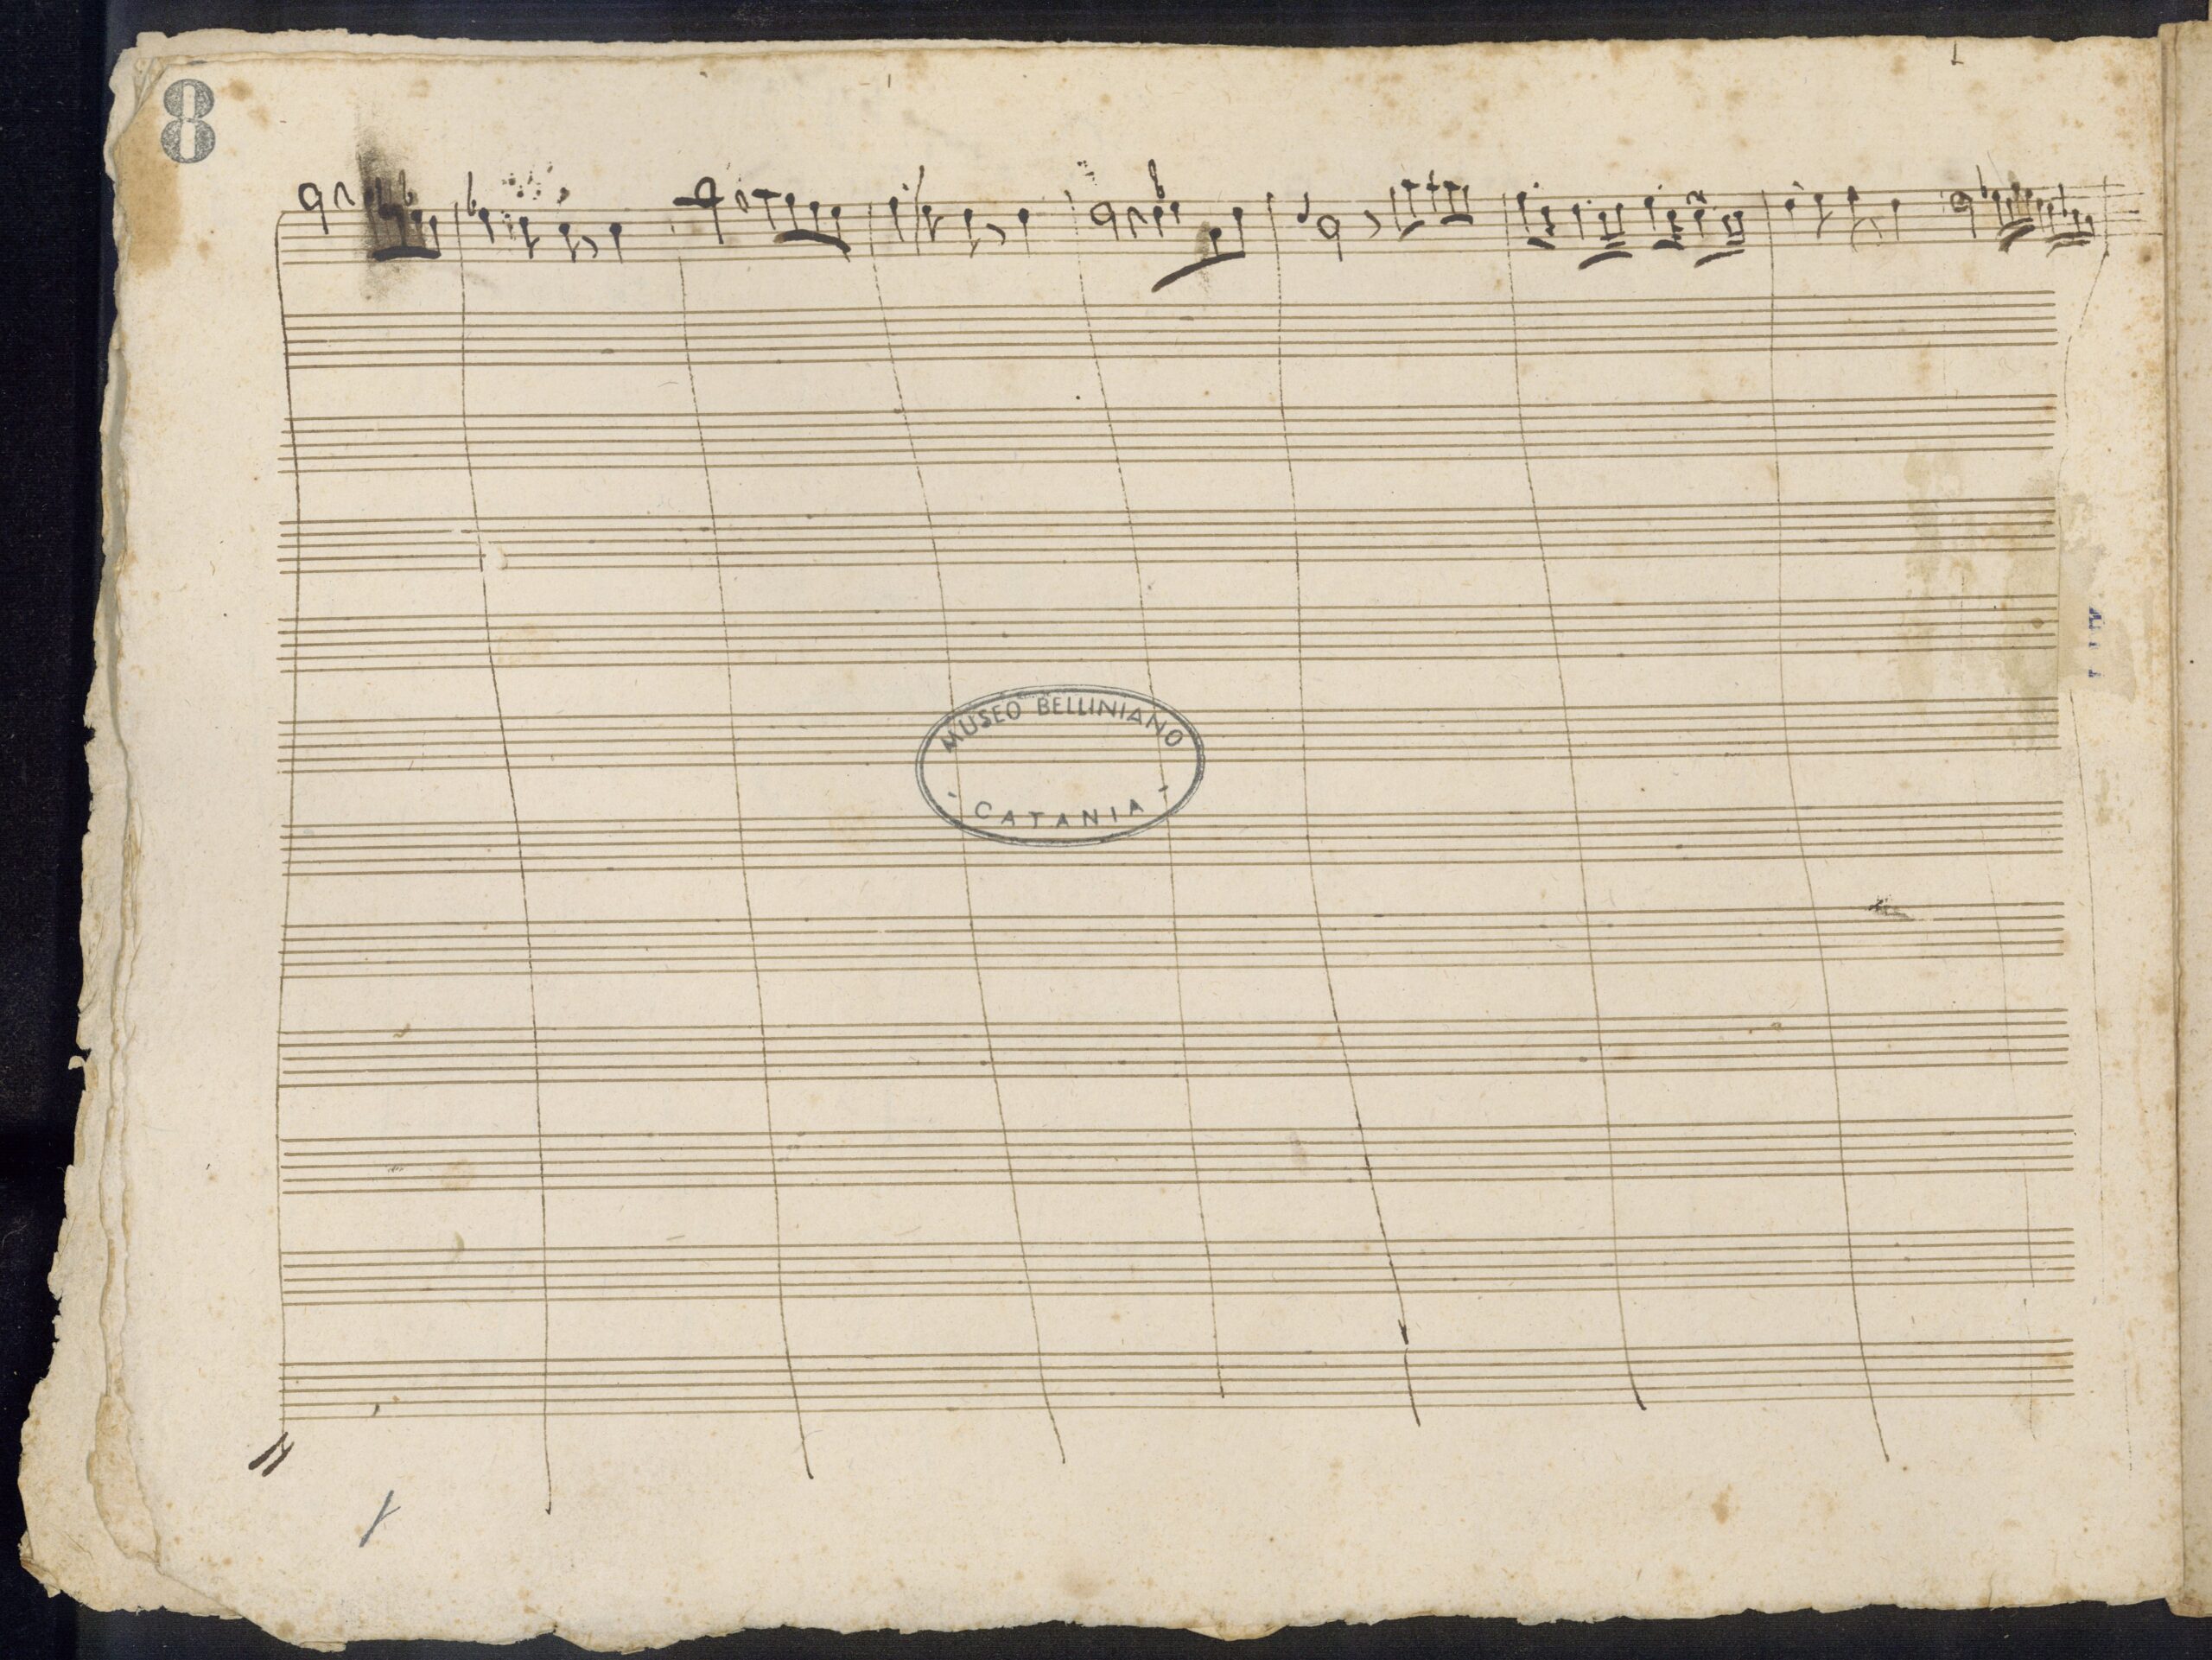 8
MUSEO BELLINIANO
- CATANIA -